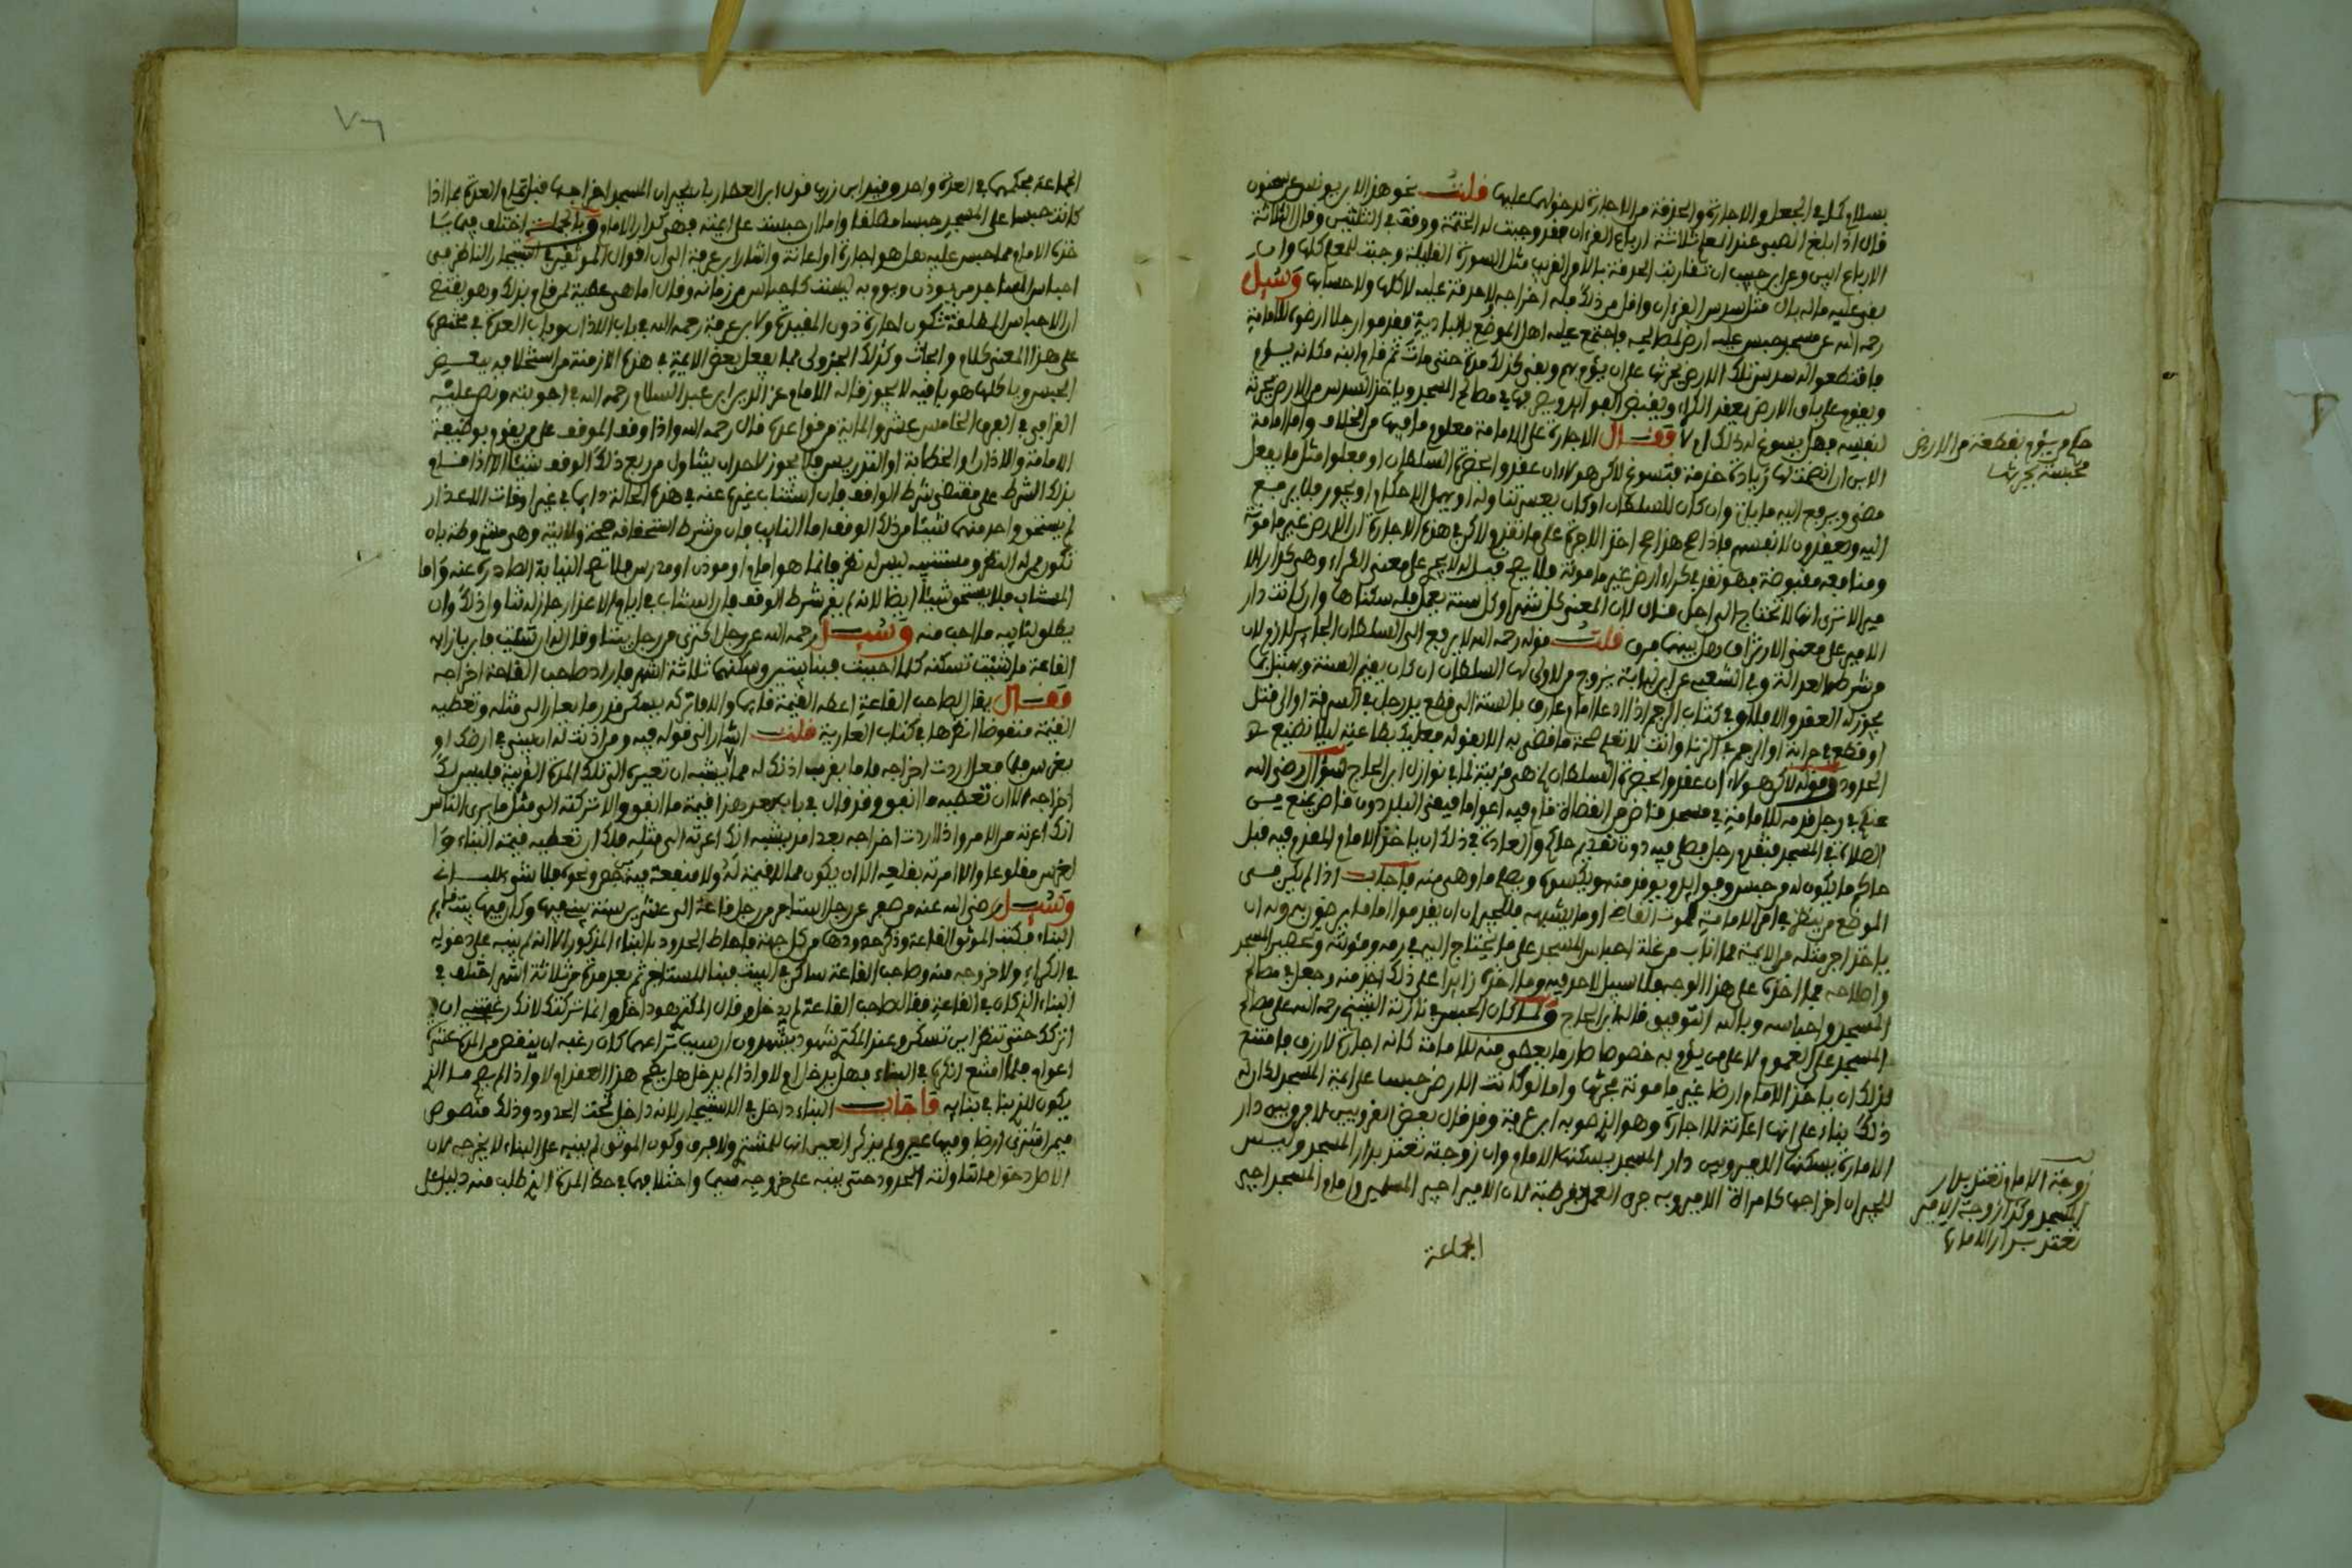 بسلام كل في الجعل والاجارة والحذقة من الاجارة لدخولها عليها قلت نحو هذا لابن يونس عن سحنون
قال اذا بلغ الصبي عند المعلم ثلاثة ارباع القرءان فقد وجبت له الختمة ووقف في الثلثين وقال الثلاثة
الارباع ابين وعن ابن حبيب ان تقاربت الحذقة بالامر القريب مثل السورة القليلة وجبت للمعلم كلها وان
بقي عليه ماله بال مثل سدس القرءان واقل من ذلك فله اخراجه لا حذقة عليه لا كلها ولا حسابها وسيل
رحمه الله عن مسجد حبس عليه ارض لمصالحه فاجتمع عليه اهل الموضع بالبادية فقدموا رجلا ارضوه للامامة
فاقتطعوا له سدس تلك الارض يحرثها على ان يؤم بهم وبقي كذلك مدة حتى مات ثم قام ابنه مكانه يؤم
ويقوم على باقي الارض بعقد الكراء ويقبض الفوايد ويصرفها في مصالح المسجد وياخذ السدس من الارض يحرثه
لنفسه فهل يسوغ له ذلك ام لا فقال الاجارة على الامامة معلوم ما فيها من الخلاف واما امامة
الابن ان انضمت لها زيادة خدمة فتسوغ لاكن هولاء ان عقدوا بحضرة السلطان او فعلوا مثل ما يفعل
مضى ويرفع اليه ما بان وان كان للسلطان او كان يعسر تناوله او يهمل الاحكام او يجور فلا يرفع
اليه ويعقدون لانفسهم فاذا صح هذا صح اخذ الاجرة على ما تقدم ولاكن في هذه الاجارة ان الارض غير مامونة
ومنافعه مقبوضة فهو نقد في كراء ارض غير مامونة فلا يصح قيل له لا يجري على معنى الكراء وهي كدار الا
مير الا ترى انها لا تحتاج الى اجل قال لان المعنى كل شهر او كل سنة يعمل فله سكناها وان كانت دار
الامير على معنى الارتزاق وهل بينهما فرق قلت قوله رحمه الله لا يرفع الى السلطان الجاير للزوم لان
من شرطه العدالة وفي الشعبي عن ابن لبابة يزوج من لا ولي لها السلطان ان كان يقيم السنة
يجوز له العقد والا فلا وفي كتاب الرجم اذا دعا امام عارف بالسنة الى قطع يد رجل في السرقة او الى قتل
او قطع في حرابة او الرجم في الزنا وانت لا تعلم صحة ما قضى به الا بقوله فعليك بطاعته ليلا تضيع
الحدود وقوله لاكن هولاء ان عقدوا بحضرة السلطان هي قريبة لما في نوازل ابن الحاج سؤال رضي الله
عنكم في رجل قدمه للامامة في مسجد قاض من القضاة فام فيه اعواما فبقي البلد دون قاض يمنع من
الصلاة في المسجد فتقدم رجل يصلي فيه دون تقديم حاكم والعادة في ذلك ان ياخذ الامام المقدم فيه قبل
حاكم ما يكون له من حبس وفوايد ويوفر منه ويكسوه ويصلح ما وهى منه فاجاب اذا لم يكن من
الموضع من ينظر في امر الامامة لموت القاضي او ما يشبهه فللجيران ان يقدموا اماما يرضون به وله ان
ياخذ اجر مثله من الايمة مما اناب من غلة احباس المسجد على ما يحتاج اليه في رمه ومئونته وتحصير المسجد
واصلاحه مما اخذه على هذا الوجه فلا سبيل لاحد فيه وما اخذه زايدا على ذلك اخذ منه وجعل في مصالح
المسجد واحباسه وبالله التوفيق قاله ابن الحاج ولما كان الحبس في نازلة الشيخ رحمه الله على مصالح
المسجد على العموم لا على من يؤم به خصوصا صار ما يعطى منه للامامة كانه اجارة لا رزق فامتنع
لذلك ان ياخذ الامام ارضا غير مامونة يحرثها واما لو كانت الارض حبسا على ايمة المسجد لكان له
ذلك بناء على انها اعانة لا اجارة وهو الذي صوبه ابن عرفة وقد قال بعض القرويين لا فرق بين دار
الامارة يسكنها الامير وبين دار المسجد يسكنها الامام وان زوجته تعتد بدار المسجد وليس
للجيران اخراجها كامراة الامير وبه جرى العمل بقرطبة لان الامير اجير المسلمين وامام المسجد اجير
الجماعة
حكم من يؤم بقطعة من الارض
محبسة يحرثها
زوجة الامام تعتد بدار
المسجد وكذا زوجة الامير
تعتد بدار الامارة
الجماعة فحكمهما في العدة واحد وقيد ابن زرب قول ابن العطار بان لجيران المسجد اخراجها قبل تمام العدة بما اذا
كانت حبسا على المسجد حبسا مطلقا واما ان حبست على ايمته فهي كدار الامام وبالجملة اختلف فيما يا
خذه الامام مما حبس عليه هل هو اجارة او اعانة واشار ابن عرفة الى ان اقوال الموثقين في استيجار الناظر في
احباس المساجد من يوذن ويؤم به ليست كاحباس من زمانه وقال انما هي عطية لمن قام بذلك وهو يقتضي
ان الاحباس المطلقة تكون اجارة دون المقيدة ولابن عرفة رحمه الله في باب الاذان وباب العدة في مختصره
على هذا المعنى كلام وابحاث وكذلك الجزولي مما يفعل بعض الايمة في هذه الازمنة من استخلافه ببعض
الحبس وياكلها هو باقيه لا يجوز قاله الامام عز الدين ابن عبد السلام رحمه الله في اجوبته ونص عليه
القرافي في الفرق الخامس عشر والماية من قواعده قال رحمه الله واذا وقف الموقف على من يقوم بوظيفة
الامامة والاذان او الخطابة او التدريس فلا يجوز لاحد ان يتناول من ريع ذلك الوقف شيئا الا اذا قام
بذلك الشرط على مقتضى شرط الواقف فان استناب غيره عنه في هذه الحالة دايما في غير اوقات الاعذار
لم يستحق واحد منهما شيئا من ذلك الوقف اما النايب فان من شرط استحقاقه صحة ولايته وهي مشروطة بان
تكون ممن له النظر ومستنيبه ليس له نظر فانما هو امام او موذن او مدرس فلا تصح النيابة الصادرة عنه واما
المستنيب فلا يستحق شيئا ايضا لانه لم يقم بشرط الوقف فان استناب في ايام الاعذار جاز له تناول ذلك وان
يطلق لنايبه ما احب منه وسيل رحمه الله عن رجل اكترى من رجل بيتا
القاعة ما شئت تسكنه كما احببت فبنا بيتين وسكنها ثلاثة اشهر فاراد صاحب القاعة اخراجه
فقال يقال لصاحب القاعة اعطه القيمة قايما والا فاتركه يسكن قدر ما يعار الى مثله وتعطيه
القيمة منقوضا انظرها في كتاب العارية قلت اشار الى قوله فيه ومن اذنت له ان يبني في ارضك او
يغرس فلما فعل اردت اخراجه فاما بقرب اذنك له مما لا يشبه ان تعيره الى تلك المدة القريبة فليس لك
اخراجه الا ان تعطيه ما انفق وقد قال في باب بعد هذا قيمة ما انفق والا تركته الى مثل ما يرى الناس
انك اعرته من الامد واذا اردت اخراجه بعد امد يشبه انك اعرته الى مثله فلك ان تعطيه قيمة البناء وا
لغرس مقلوعا والا امرته بقلعه الا ان يكون مما لا قيمة له ولا منفعة فيه كجص ونحوه فلا شيء للباني
وسيل رضي الله عنه عن رجل استاجر من رجل قاعة الى عشرين سنة يبني فيها وكان فيها
البناء فكتب الموثق القاعة وذكر حدودها من كل جهة فاحاط الحدود بالبناء المذكور الا انه لم ينبه على دخوله
في الكراء ولا خروجه منه وصاحب القاعة ساكن في البيت فبنا المستاجر ثم بعد مدة من ثلاثة اشهر اختلف في
البناء الذي كان في القاعة فقال صاحب القاعة لم يدخل وقال المكتري هو داخل وانما تركتك لانك رغبتني ان
اتركك حتى تنظر اين تسكن وعند المكتري شهود يشهدون ان سبب تركها كان رغبه ان ينقص من المدة عشرة
اعوام فلما امتنع اذكره في البناء فهل يدخل ام لا واذا لم يدخل هل يصح هذا العقد ام لا واذا لم يصح ما الذي
يكون للذي بنا في بنايه فاجاب البناء داخل في الاستيجار لانه داخل تحت الحدود وذلك منصوص
فيمن اشترى ارضا وفيها عين ولم يذكر العين انها للمشتري ولا فرق وكون الموثق لم ينبه على البناء لا يخرجه لان
الاصل دخول ما تناولته الحدود حتى ينبه على خروجه منها واختلافهما في حط المدة الذي طلب منه دليل على